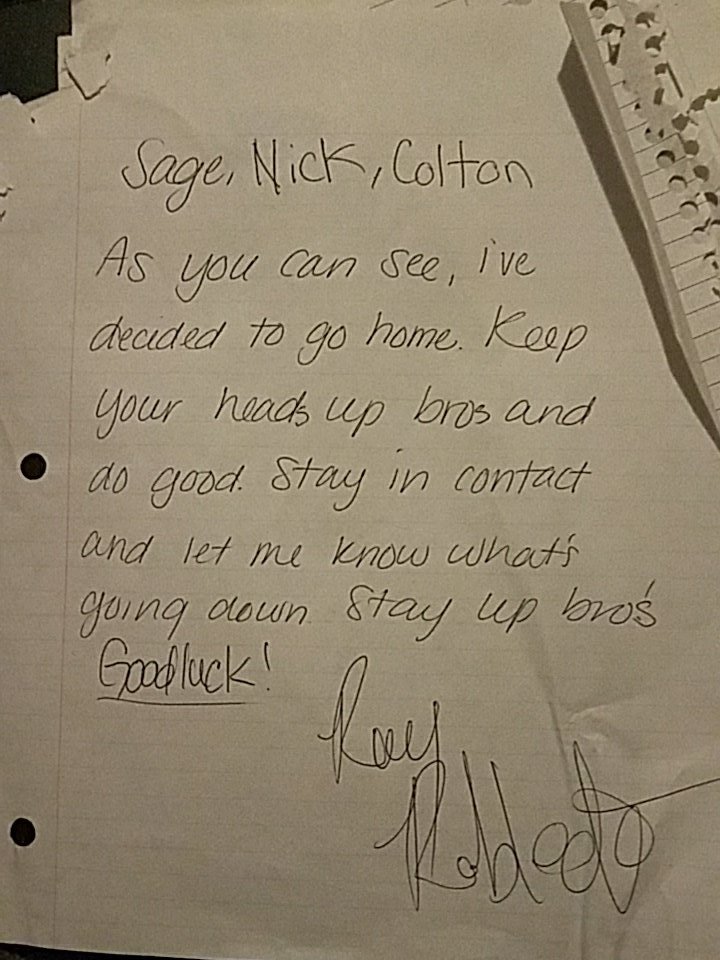 Sage, Nick, Colton
As you can see, i've
decided to go home. Keep
your heads up bros and
do good. Stay in contact
and let me know what's
going down. Stay up bro's
Goodluck!
Ray